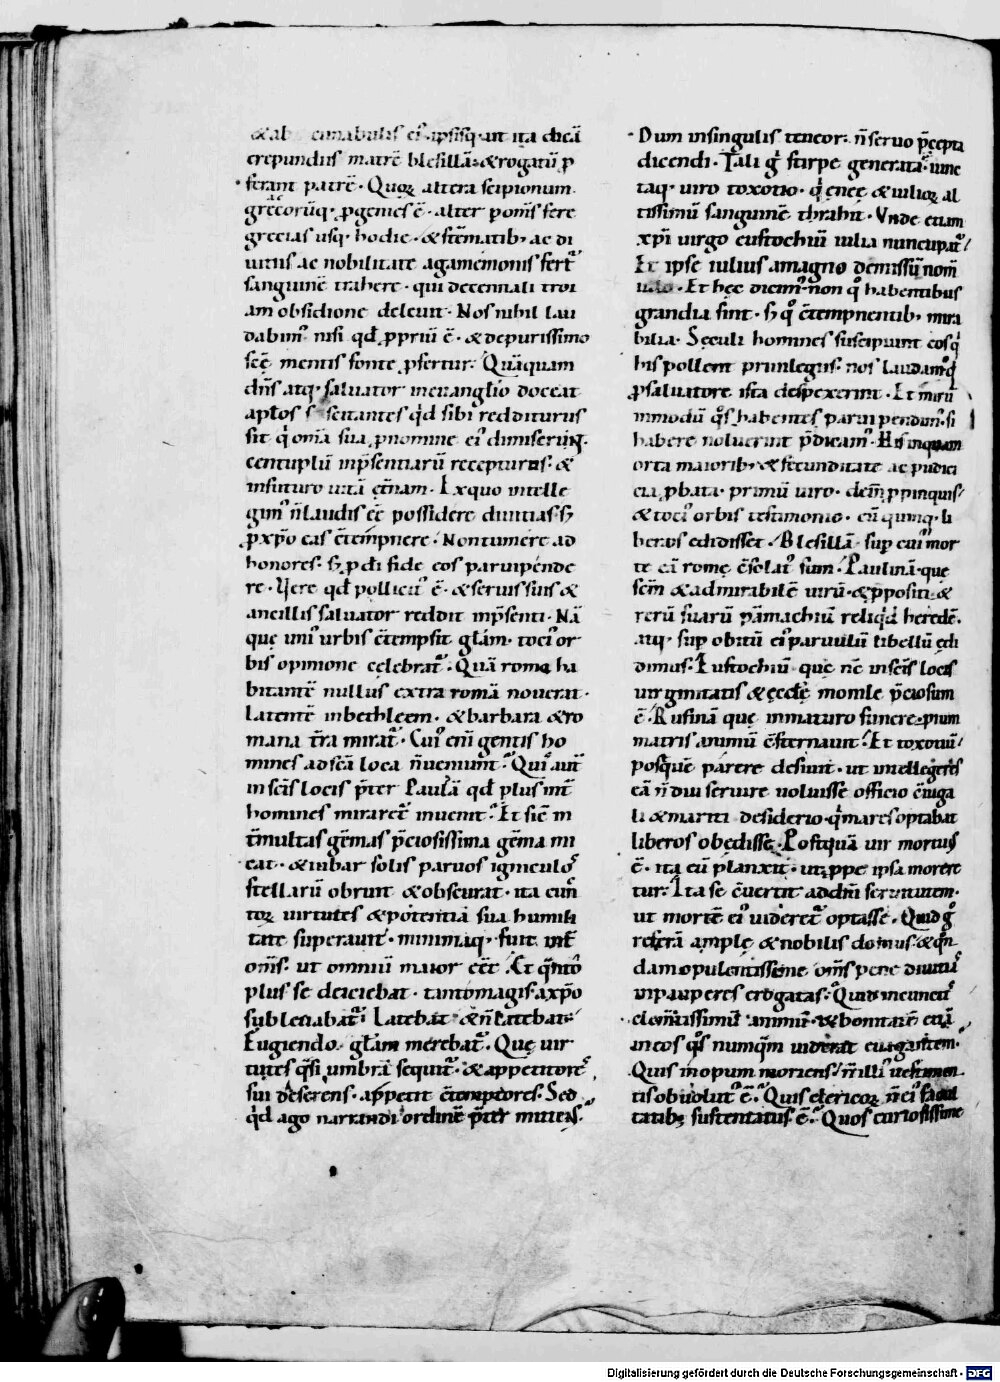 & ab cunabulis ei᾽ ipsisq; ut ita dicā
crepundiis matrē blesillā· & rogatū p̄
ferant patrē · Quoꝝ altera scipionum
gręcorūq; ꝓgenies ē · alter ponīs fere
grecias usq; hodie · & stēmatib; ac di
uitiis ac nobilitate agamemonis fert᾽
sanguinē trahere · qui decennali troi
am obsidione deleuit · Nos nihil lau
dabim᾽ nisi qđ ꝓpriū ē · & de purissimo
scę mentis fonte ꝓfertur · Quāquam
dn̄s atq; saluator in euanglio doceat
apłos sciscitantes qͥd sibi redditurus
sit qͥ omā sua ꝓ nomine ei᾽ dimiserint·
centupliū inp̄sentiarū recepturos · &
in futuro uitā ęt̄nam · Ex quo intelle
gim᾽ n̄ laudis eē possidere diuitias· s;
ꝓ xp̄o eas c̄tempnere · Non tumere ad
honores · s; ꝓ dī fide eos paruipende
re · Vere qđ pollicit᾽ ē · & seruis suis &
ancillis saluator reddit inp̄senti · Nā
quę uni᾽ urbis c̄tempsit głam · toci᾽ or
bis opinione celebrat᾽ · Quā romę ha
bitantē nullus extra romā nouerat ·
Latentē in bethleem · & barbara & ro
mana t̄ra mirat᾽ · Cui᾽ eni gentis ho
mines ad scā loca n̄ ueniunt · Qui᾽ aut̄
in scīs locis p̄ter Paulā qđ plus int̄
homines miraret᾽ inuenit · Et sic̄ in
t̄ multas gēmas p̄ciosissima gēma mi
cat · & iubar solis paruos igniculos
stellarū obruit & obscurat · ita cunc
toꝝ uirtutes & potentiā sua humili
tate superauit · minimaq; fuit int̄
om̄s · ut omniū maior eēt · Et qͣnto
plus se deiciebat · tanto magis a xp̄o
subleuabat᾽ · Latebat & n̄ latebat ·
Fugiendo głam merebat᾽ · Quę uir
tutes qͣsi umbrā sequit᾽ · & appetitores
sui deserens · appetit c̄temptores · Sed
qͥd ago narrandi ordinē p̄ter mittēs ·
Dum in singulis teneor · n̄ seruo p̄cepta
dicendi · Tali gͥ stirpe generata · iunc
taq; uiro toxotio · qͥ enee & iulioꝝ al
tissimū sanguinē trahit · Vnde etiam
xp̄i uirgo eustochiū iulia nuncupat᾽
Et ipse iulius a magno demissū nom̄
iulo · Et hęc dicim᾽ · non qͦ habentibus
grandia sint · s; qͦ c̄tempnentib; mira
bilia · Sęculi homines suscipiunt eos qͥ
his pollent priuilegiis · nos laudam᾽ qͥ
ꝓ saluatore ista despexerint · Et mirū
in modū qͦs habentes parui pendim᾽ · si
habere noluerint p̄dicam᾽ · His inquam
orta maiorib; & fecunditate ac pudici
cia ꝓbata · primū uiro · dein ꝓpinquis
& toci᾽ orbis testimonio · cū quinq; li
beros edidisset · Blesillā sup cui᾽ mor
te eā romę c̄solat᾽ sum · Paulinā · quę
scm̄ & admirabilē uirū · & ꝓpositi &
rerū suarū pāmachiū reliqͥt heredē ·
atq; sup obitū ei᾽ paruulū libellū edi
dimus · Eustochiū · quę nc̄ in scīs locis
uirginitatis & ęcclę monile p̄ciosum
ē · Rufinā quę inmaturo funere · pium
matris animū c̄sternauit · Et toxotiū
posquē parere desiuit · ut intellegeres
eā n̄ diu seruire uoluisse officio c̄iuga
li & mariti desiderio · qͥ mares optabat
liberos obedisse · Postquā uir mortuus
ē · ita eū planxit · ut ꝓpe ipsa morere
tur · Ita se c̄uertit ad dn̄i seruitutem ·
ut mortē ei᾽ uideret᾽ optasse · Quid gͦ
referā amplę & nobilis domus · & qͦn
dam opulentissime om̄s pene diuitias
in pauperes erogatas · Quid in cunctos
clem̄tissimū animū · & bonitatē etiā
in eos qͦs numqͣm uiderat euagantem ·
Quis inopum moriens · n̄ illi᾽ uestimen
tis obuolut᾽ ē · Quis clericoꝝ n̄ ei᾽ facul
tatib; sustentatus ē · Quos curiosissime
Digitalisierung gefördert durch die Deutsche Forschungsgemeinschaft - DFG